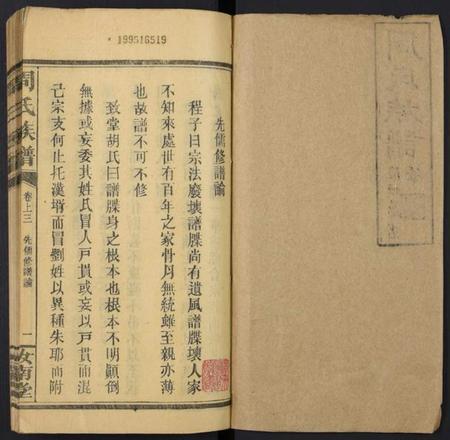 * 199516519
先儒修譜論
程子曰宗法廢壞譜牒尚有遺風譜牒壞人家
不知來處世有百年之家骨肉無統雖至親亦薄
也故譜不可不修
致堂胡氏曰譜牒身之根本也根本不明顛倒
無據或妄委其姓氏冒人戸貫或妄以戸貫而混
己宗支何止托漢壻而冒劉姓以異種朱耶而附
周氏族譜
卷上三
先儒修譜論
一
汝南堂